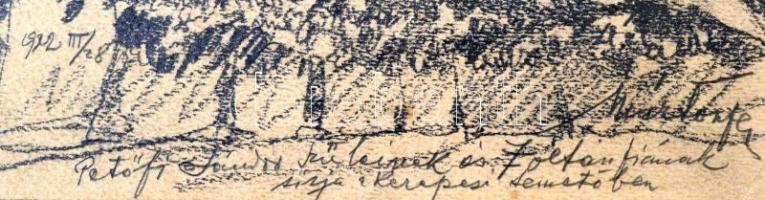 1922 III/28
Márton Fe
Petőfi Sándor szüleinek és Zoltán fiának
sírja a Kerepesi temetőben